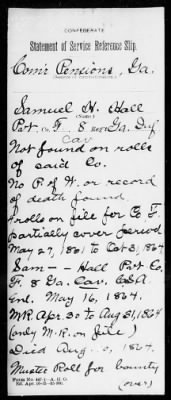 CONFEDERATE
Statement of Service Reference Slip.
Com'r Pensions, Ga.
Samuel H. Hall
(Name)
Pvt. Co. F 8 REG'T Ga. Inf.
Cav
Not found on rolls
of said Co.
No P. of W. or record
of death found.
rolls on file for Co F.
partially cover period
May 27, 1861 to Oct 3, 1864
Sam — Hall Pvt Co.
F. 8 Ga. Cav. CSA
Enl. May 16, 1864.
MR Apr. 30 to Aug 31, 1864
(only M.R. on file)
Died Aug 1864.
Muster Roll for bounty
(over)